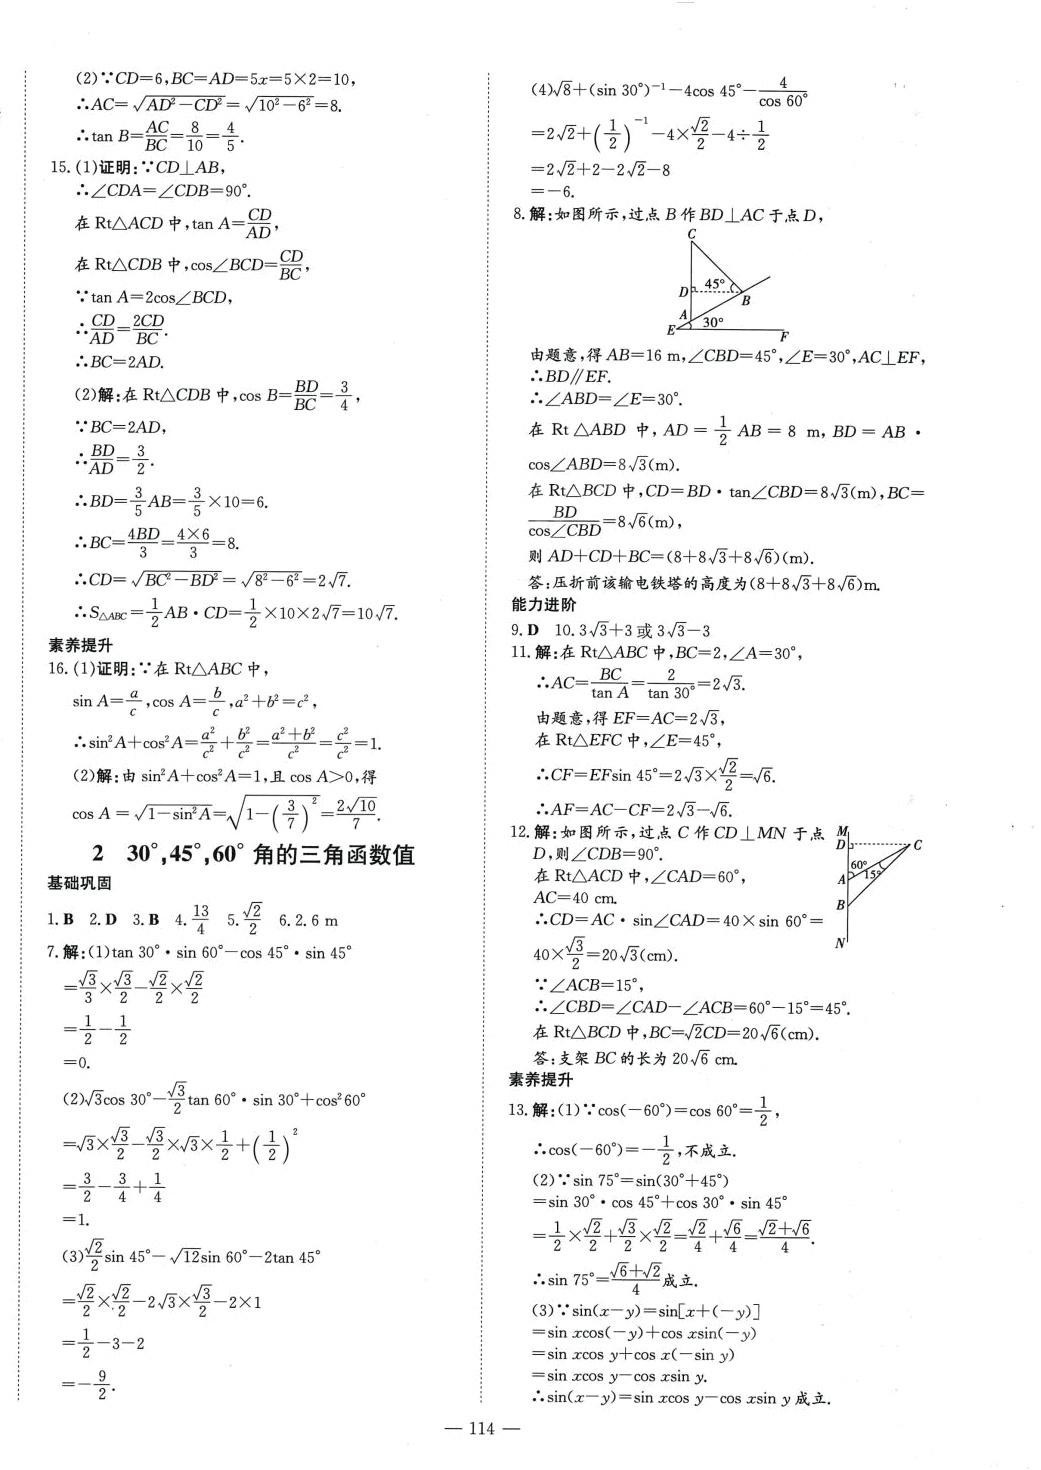 (2)∵CD=6,BC=AD=5x=5×2=10,
∴AC=√(AD²-CD²)=√(10²-6²)=8.
∴tan B=AC/BC=8/10=4/5.
15.(1)证明:∵CD⊥AB,
∴∠CDA=∠CDB=90°.
在 Rt△ACD 中,tan A=CD/AD,
在 Rt△CDB 中,cos∠BCD=CD/BC,
∵tan A=2cos∠BCD,
∴CD/AD=2CD/BC.
∴BC=2AD.
(2)解:在 Rt△CDB 中,cos B=BD/BC=3/4,
∵BC=2AD,
∴BD/AD=3/2.
∴BD=3/5AB=3/5×10=6.
∴BC=4BD/3=4×6/3=8.
∴CD=√(BC²-BD²)=√(8²-6²)=2√7.
∴S△ABC=1/2AB·CD=1/2×10×2√7=10√7.
素养提升
16.(1)证明:∵在 Rt△ABC 中,
sin A=a/c,cos A=b/c,a²+b²=c²,
∴sin²A+cos²A=a²/c²+b²/c²=(a²+b²)/c²=c²/c²=1.
(2)解:由 sin²A+cos²A=1,且 cos A>0,得
cos A=√(1-sin²A)=√(1-(3/7)²)=2√10/7.
2 30°,45°,60°角的三角函数值
基础巩固
1.B 2.D 3.B 4.13/4 5.√2/2 6.2.6 m
7.解:(1)tan 30°·sin 60°-cos 45°·sin 45°
=√3/3×√3/2-√2/2×√2/2
=1/2-1/2
=0.
(2)√3cos 30°-√3/2tan 60°·sin 30°+cos²60°
=√3×√3/2-√3/2×√3×1/2+(1/2)²
=3/2-3/4+1/4
=1.
(3)√2/2sin 45°-√12sin 60°-2tan 45°
=√2/2×√2/2-2√3×√3/2-2×1
=1/2-3-2
=-9/2.
(4)√8+(sin 30°)⁻¹-4cos 45°-4/cos 60°
=2√2+(1/2)⁻¹-4×√2/2-4÷1/2
=2√2+2-2√2-8
=-6.
8.解:如图所示,过点 B 作 BD⊥AC 于点 D,
C
D 45° B
A
E 30° F
由题意,得 AB=16 m,∠CBD=45°,∠E=30°,AC⊥EF,
∴BD∥EF.
∴∠ABD=∠E=30°.
在 Rt△ABD 中,AD=1/2AB=8 m,BD=AB·
cos∠ABD=8√3(m).
在 Rt△BCD 中,CD=BD·tan∠CBD=8√3(m),BC=
BD/cos∠CBD=8√6(m),
则 AD+CD+BC=(8+8√3+8√6)(m).
答:压折前该输电铁塔的高度为(8+8√3+8√6)m.
能力进阶
9.D 10.3√3+3 或 3√3-3
11.解:在 Rt△ABC 中,BC=2,∠A=30°,
∴AC=BC/tan A=2/tan 30°=2√3.
由题意,得 EF=AC=2√3,
在 Rt△EFC 中,∠E=45°,
∴CF=EFsin 45°=2√3×√2/2=√6.
∴AF=AC-CF=2√3-√6.
12.解:如图所示,过点 C 作 CD⊥MN 于点
D,则∠CDB=90°.
在 Rt△ACD 中,∠CAD=60°,
AC=40 cm.
∴CD=AC·sin∠CAD=40×sin 60°=
40×√3/2=20√3(cm).
∵∠ACB=15°,
∴∠CBD=∠CAD-∠ACB=60°-15°=45°.
在 Rt△BCD 中,BC=√2CD=20√6(cm).
答:支架 BC 的长为 20√6 cm.
M
D C
60°
A 15°
B
N
素养提升
13.解:(1)∵cos(-60°)=cos 60°=1/2,
∴cos(-60°)=-1/2,不成立.
(2)∵sin 75°=sin(30°+45°)
=sin 30°·cos 45°+cos 30°·sin 45°
=1/2×√2/2+√3/2×√2/2=√2/4+√6/4=(√2+√6)/4.
∴sin 75°=(√6+√2)/4成立.
(3)∵sin(x-y)=sin[x+(-y)]
=sin xcos(-y)+cos xsin(-y)
=sin xcos y+cos x(-sin y)
=sin xcos y-cos xsin y.
∴sin(x-y)=sin xcos y-cos xsin y 成立.
— 114 —